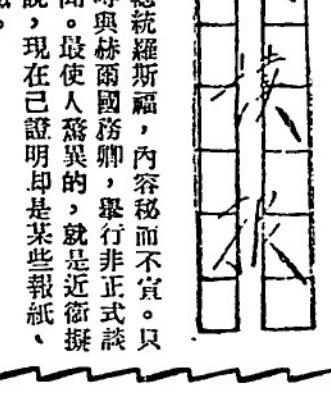 統羅斯福，內容秘而不宣。只
與赫爾國務卿，舉行非正式談
。最使人驚異的，就是近衞擬
說，現在己證明即是某些報紙、